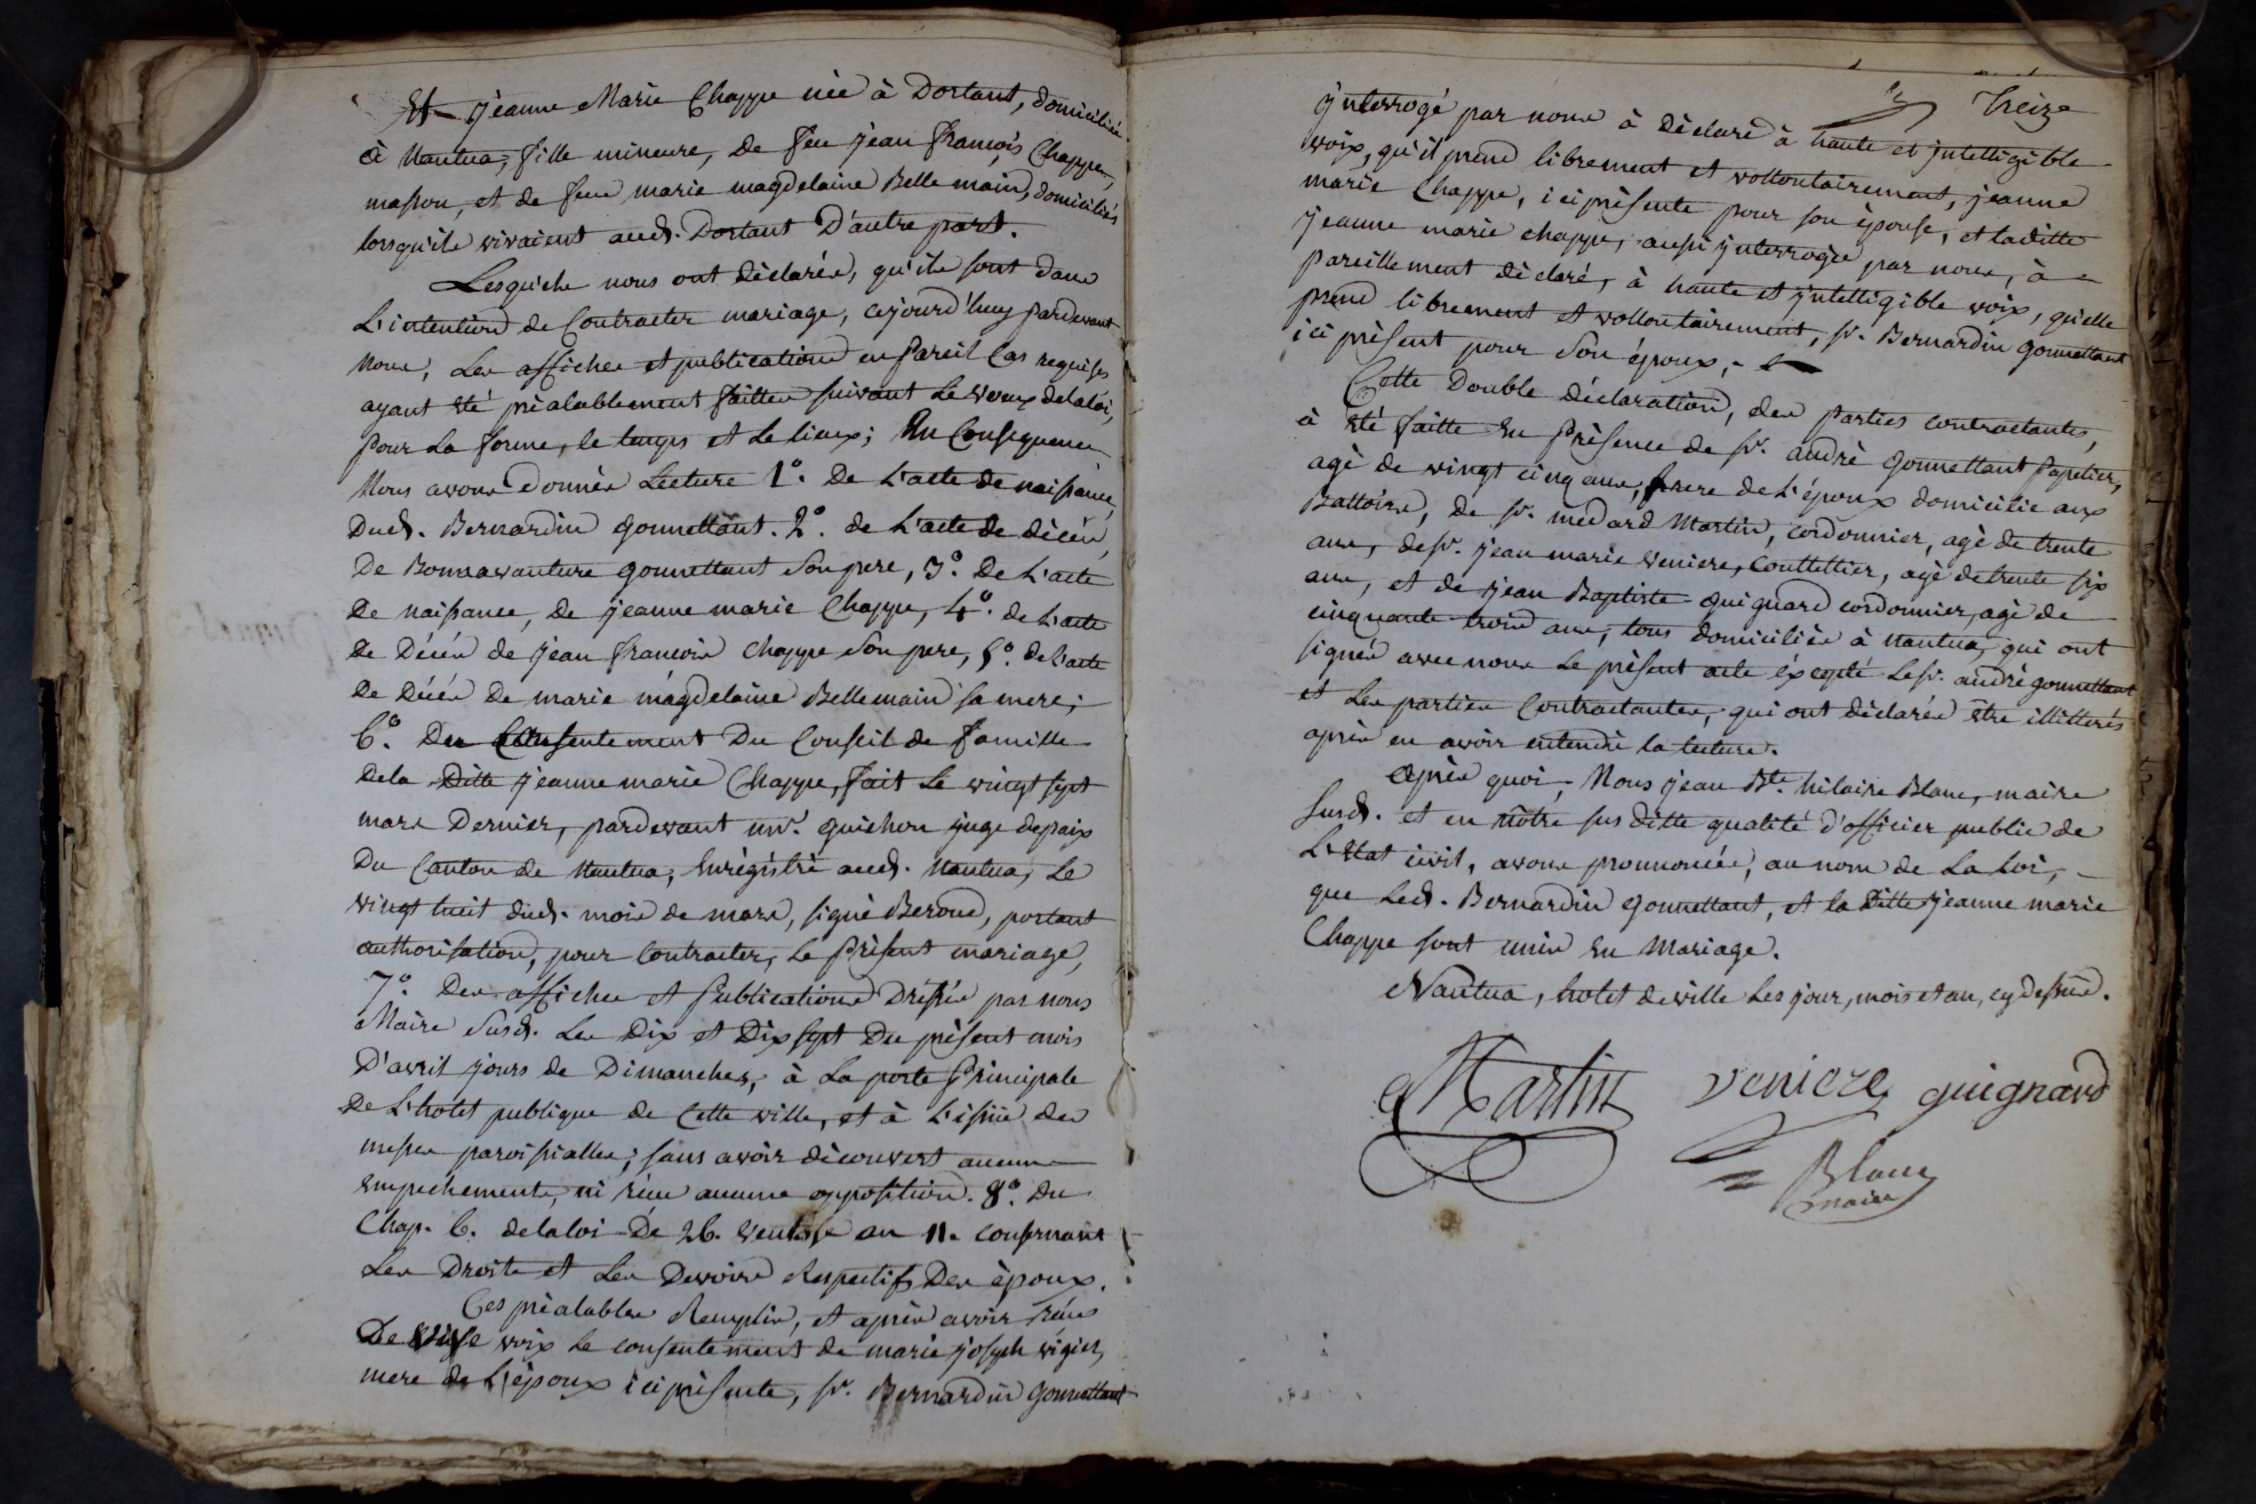 Et jeanne Marie Chappe née à Dortant, domiciliée
à Nantua, fille mineure, de feu jean françois Chappe,
masson, et de feue marie magdelaine Belle main, domiciliés
lorsqu'ils vivaient aud. Dortant D'autre part.
Lesquels nous ont déclarés, qu'ils sont dans
L'intention de Contracter mariage, cejourd'huy pardevant
Nous, Les affiches et publications en pareil Cas requises
ayant été préalablement faittes suivant Le vœux delaloi,
pour La forme, le temps et Le lieux; En Consequence
Nous avons donnés Lecture 1°. De L'acte de naissance,
Dud. Bernardin gonnettant. 2°. de L'acte de décés,
De Bonnavanture gonnettant Son pere, 3°. De L'acte
De naissance, de jeanne marie Chappe, 4°. de L'acte
De Décés de jean francois Chappe Son pere, 5°. deL'acte
De Décés De marie magdelaine Bellemain sa mere;
6°. Du Consentement Du Conseil de famille
Dela Ditte jeanne marie Chappe, fait Le vingt sept
mars Dernier, pardevant mr. guichon juge depaix
Du Canton de Nantua, Enrégistré aud. Nantua, Le
vingt huit dud. mois de mars, signé Beroud, portant
authorisation, pour Contracter, Le Présent mariage,
7°. Des affiches et Publications Dréssés par nous
Maire Susd. Les Dix et Dix sept Du présent mois
D'avril jours de Dimanches, à La porte Principale
De L'hotel publique de Cette ville, et à L'issüe des
messes paroissialles; sans avoir découvert aucuns
Empechements, ni réçus aucune opposition. 8°. Du
Chap. 6. delaloi De 26. Ventose an 11. consernant
Les Droits et Les Devoirs Respectifs Des époux.
Ces préalables Remplis, et aprés avoir réçus
De vive voix Le consentement de marie joseph végier,
mere de L'époux ici présente, sr. Bernardin Gonnettant
Treize
jnterrogé par nous à déclaré à haute et jntelligible
voix, qu'il prend librement et vollontairement, jeanne
marie Chappe, ici présente pour son épouse, et laditte
jeanne marie chappe, aussi jnterrogée par nous, à
pareillement déclaré, à haute et jntelligible voix, qu'elle
prend librement et vollontairement, sr. Bernardin gonnettant
ici présent pour Son époux,
Cette Double déclaration, des parties contractantes,
à été faitte En Présence de sr. andré gonnettant papetier,
agé de vingt cinq ans, frere de L'époux domicilié aux
Battoirs, de sr. medard Martin, cordonnier, agé de trente
ans, de sr. jean marie veniere, Couttellier, agé detrente six
ans, et de jean Baptiste guignard cordonnier, agé de
cinquante trois ans, tous domiciliés à Nantua, qui ont
signés avec nous Le présent acte éxcepté Le sr. andré gonnettant
et Les parties Contractantes, qui ont déclarés être illitterés
aprés en avoir entendû la lecture.
Aprés quoi, Nous jean Bte. hilaire Blanc, maire
Susd. et en nôtre sus ditte qualité d'officier public de
L'Etat civil, avons pronnoncés, au nom de La Loi,
que Led. Bernardin gonnettant, et la Ditte jeanne marie
Chappe sont unis En Mariage.
Nantua, hotel de ville Les jour, mois et an, cy dessus.
Martin veniere guignard
Blanc
maire